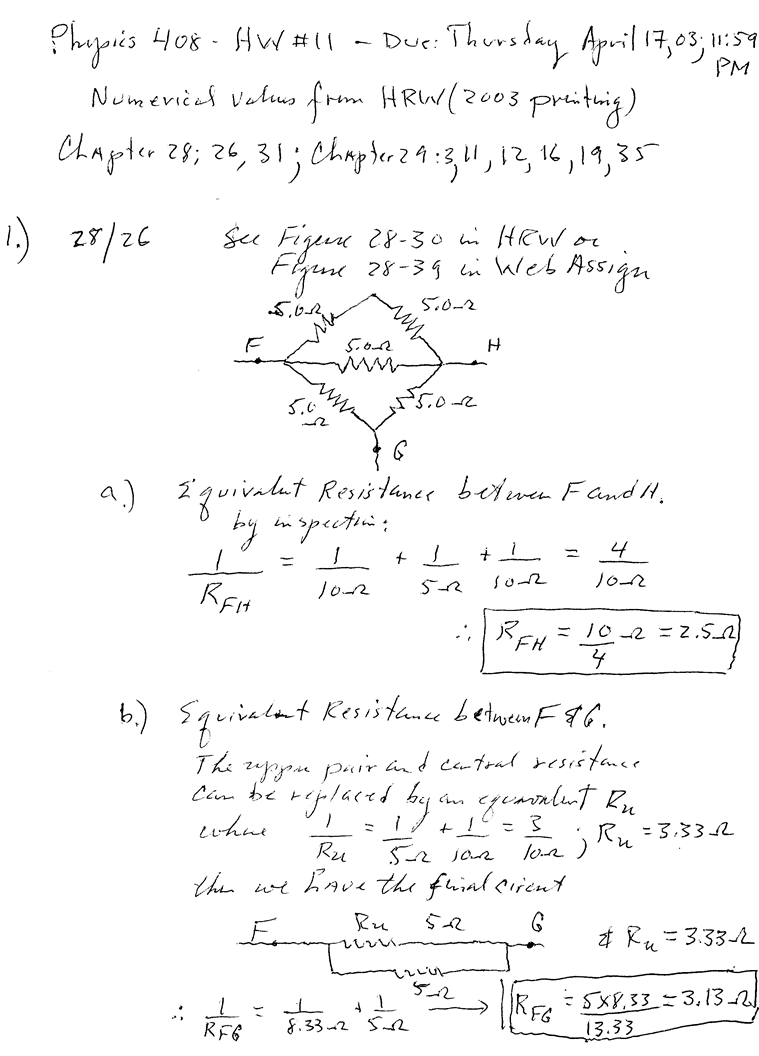 Physics 408 - HW #11 - Due: Thursday April 17, 03; 11:59
PM
Numerical values from HRW (2003 printing)
Chapter 28; 26, 31; Chapter 29: 3, 11, 12, 16, 19, 35
1.) 28/26 See Figure 28-30 in HRW or
Figure 28-39 in Web Assign
5.0Ω 5.0Ω
F 5.0Ω H
5.0 Ω 5.0Ω
G
a.) Equivalent Resistance between F and H.
by inspection:
1/R_FH = 1/10Ω + 1/5Ω + 1/10Ω = 4/10Ω
∴ R_FH = 10/4 Ω = 2.5Ω
b.) Equivalent Resistance between F & G.
The upper pair and central resistance
can be replaced by an equivalent Ru
where 1/Ru = 1/5Ω + 1/10Ω = 3/10Ω ; Ru = 3.33Ω
then we have the final circuit
F Ru 5Ω G & Ru = 3.33Ω
5Ω
∴ 1/R_FG = 1/8.33Ω + 1/5Ω → R_FG = 5×8.33/13.33 = 3.13Ω